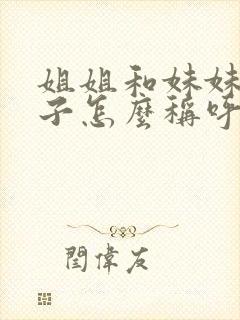 姐姐和妹妹
子怎麼稱呼
閆偉友